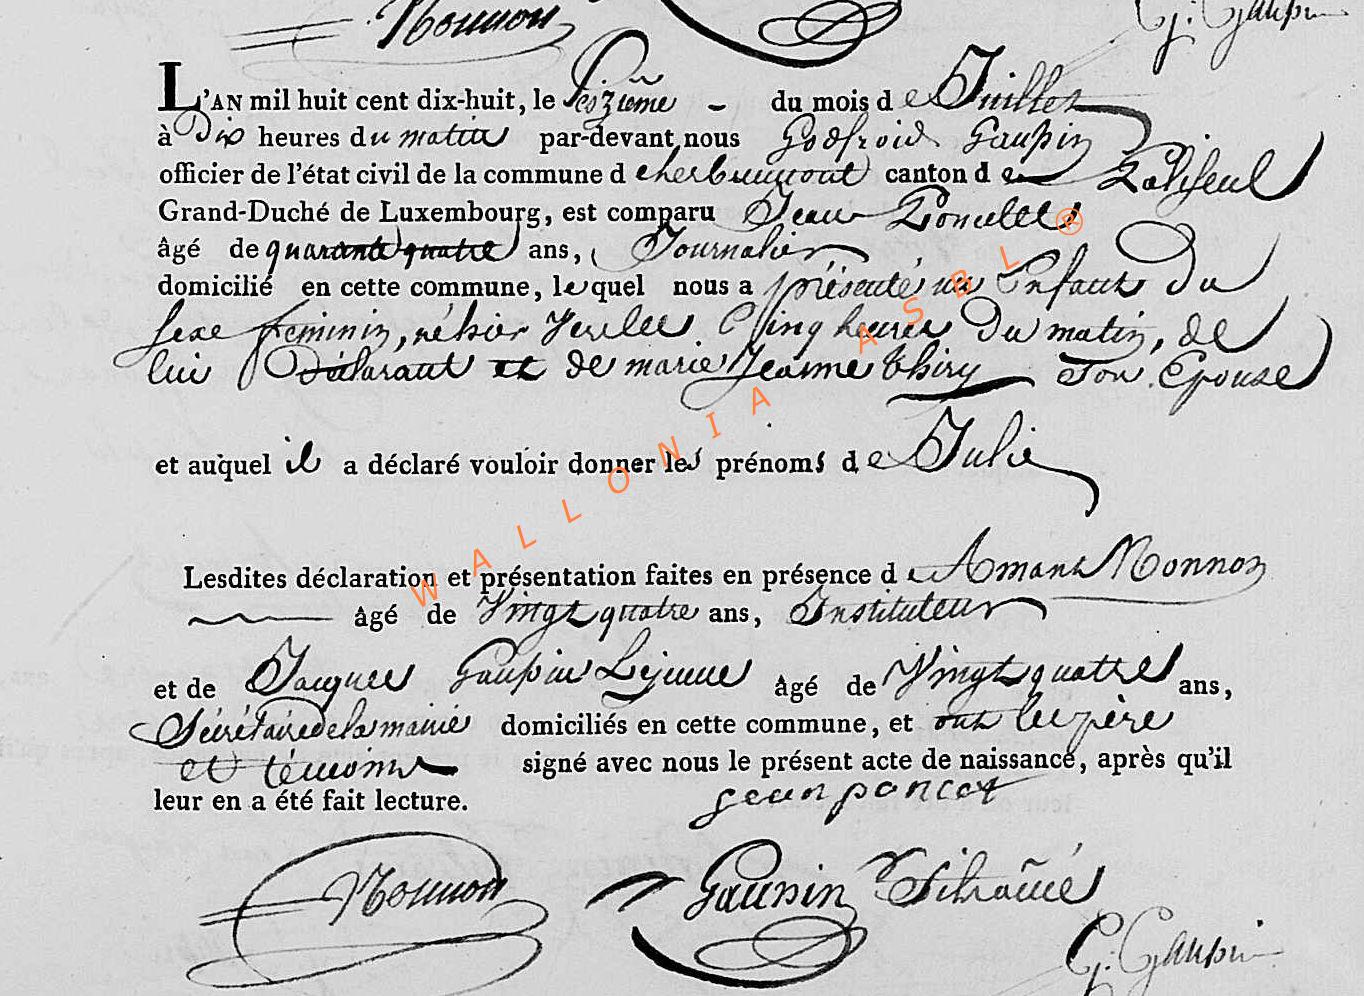 Nonnon G. Gaupin
L'AN mil huit cent dix-huit, le seizième du mois de Juillet
à Dix heures du matin par-devant nous Godfroid Gaupin
officier de l'état civil de la commune d'herbeumont canton de Paliseul
Grand-Duché de Luxembourg, est comparu Jean Poncelet
âgé de quarante quatre ans, Journalier
domicilié en cette commune, lequel nous a présenté un Enfant du
sexe feminin, né hier Juillet Cinq heures du matin, de
lui Déclarant et de marie Jeanne thiry Son Epouse
et auquel il a déclaré vouloir donner les prénoms de Julie
Lesdites déclaration et présentation faites en présence de Amant Nonnon
âgé de Vingt quatre ans, Instituteur
et de Jacques Gaupin Lejeune âgé de Vingt quatre ans,
Sécrétaire de la mairie domiciliés en cette commune, et ont les père
et témoins signé avec nous le présent acte de naissance, après qu'il
leur en a été fait lecture. jean poncet
Nonnon Gaupin Sécrétaire
G. Gaupin
WALLONIA ASBL ®